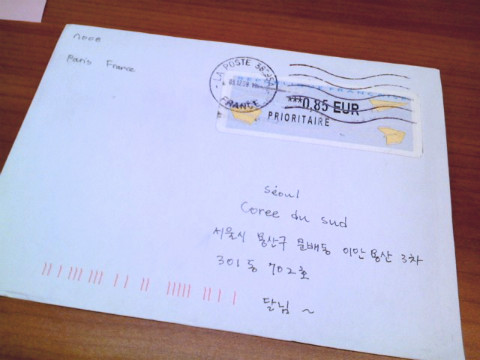 Paris France
LA POSTE
FRANCE
***0,85 EUR
PRIORITAIRE
séoul
Coree du sud
서울시 용산구 문배동 이안용산 3차
301동 702호
달님 ~